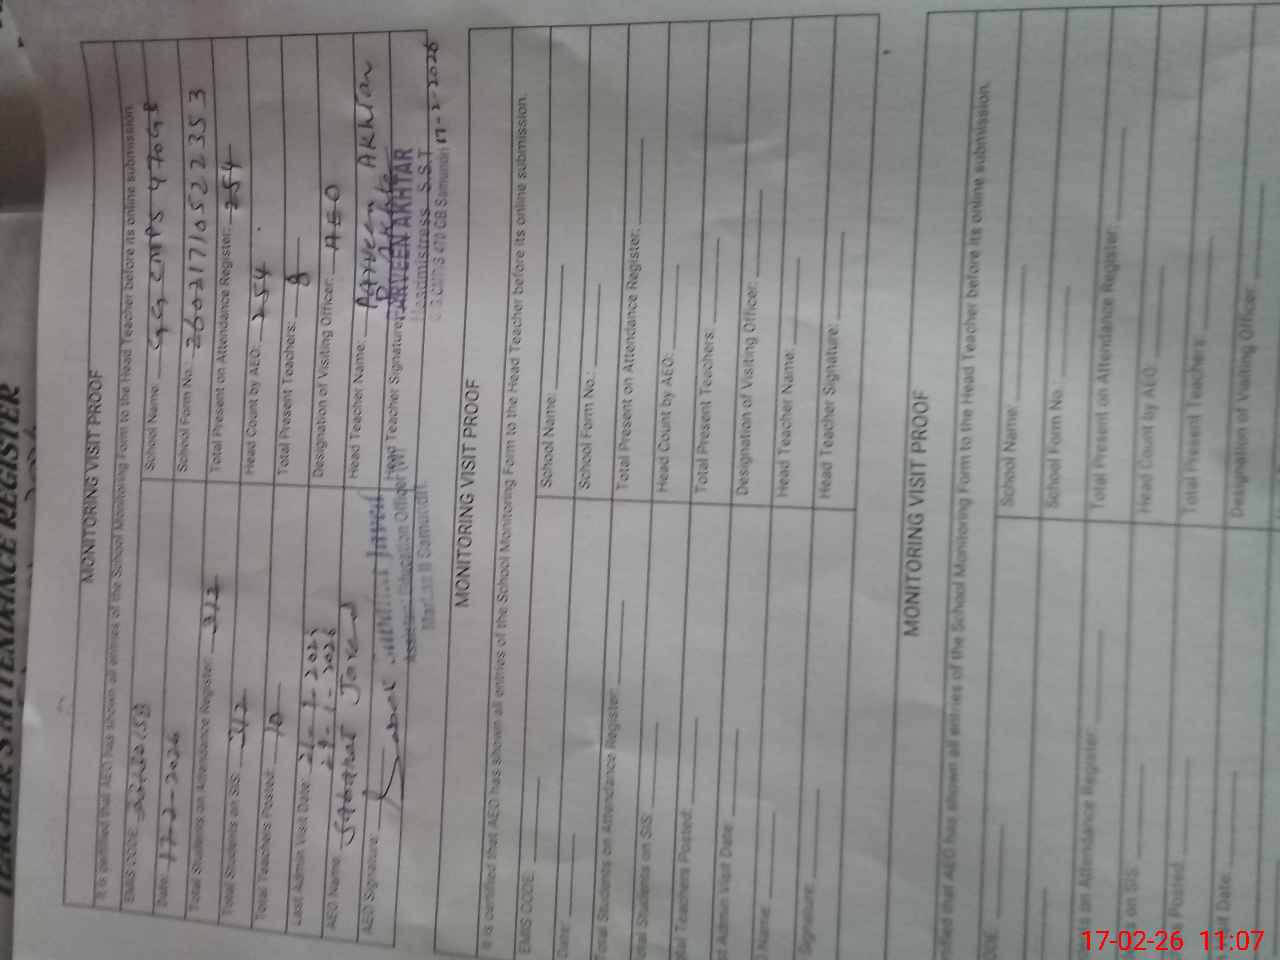 TEACHER'S ATTENDANCE REGISTER
MONITORING VISIT PROOF
It is certified that AEO has shown all entries of the School Monitoring Form to the Head Teacher before its online submission.
EMIS CODE:
School Name: GGCMPS 470GB
Date: 17-2-2026
School Form No.: 26021710522353
Total Students on Attendance Register: 312
Total Present on Attendance Register: 254
Total Students on SIS: 312
Head Count by AEO: 254
Total Teachers Posted: 10
Total Present Teachers: 8
Last Admin Visit Date:
29-1-2026
Designation of Visiting Officer: AEO
AEO Name: Javed
Head Teacher Name: Parveen Akhtar
AEO Signature:
Head Teacher Signature:
Assistant Education Officer (W)
Markaz II Samundri.
PARVEEN AKHTAR
Headmistress S.S.T
470 GB Samundri 17-2-2026
MONITORING VISIT PROOF
It is certified that AEO has shown all entries of the School Monitoring Form to the Head Teacher before its online submission.
EMIS CODE
School Name:
Date:
School Form No.:
Total Students on Attendance Register:
Total Present on Attendance Register:
otal Students on SIS:
Head Count by AEO:
tal Teachers Posted:
Total Present Teachers:
t Admin Visit Date:
Designation of Visiting Officer:
Name:
Head Teacher Name:
Signature:
Head Teacher Signature:
MONITORING VISIT PROOF
rtified that AEO has shown all entries of the School Monitoring Form to the Head Teacher before its online submission.
ODE:
School Name:
School Form No.:
on Attendance Register:
Total Present on Attendance Register:
s on SIS:
Head Count by AEO:
Posted:
Total Present Teachers:
isit Date:
Designation of Visiting Officer:
17-02-26 11:07